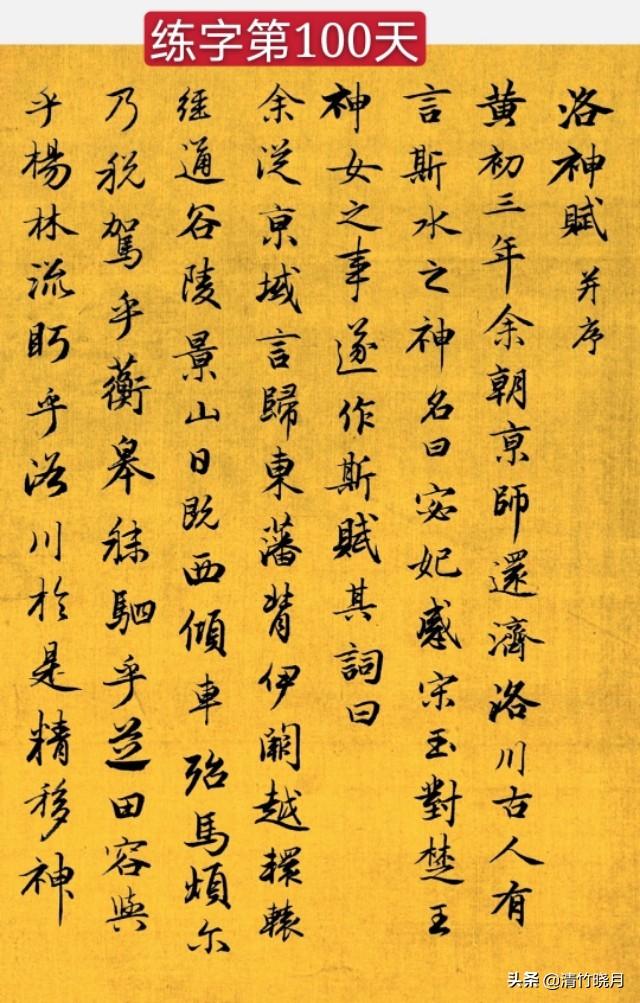 练字第100天
洛神賦 并序
黄初三年余朝京師還濟洛川古人有
言斯水之神名曰宓妃感宋玉對楚王
神女之事遂作斯賦其詞曰
余從京域言歸東藩背伊闕越轘轅
經通谷陵景山日既西傾車殆馬煩尓
乃税駕乎蘅皋秣駟乎芝田容與
乎楊林流眄乎洛川於是精移神
头条 @清竹晓月